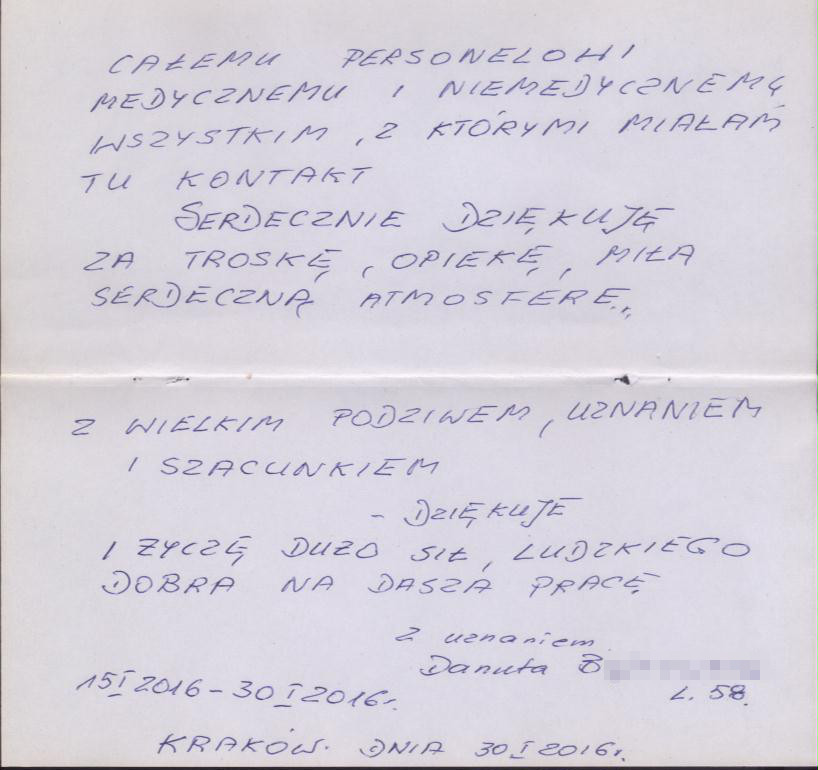 CAŁEMU PERSONELOWI
MEDYCZNEMU I NIEMEDYCZNEMU
WSZYSTKIM, Z KTÓRYMI MIAŁAM
TU KONTAKT
SERDECZNIE DZIĘKUJĘ
ZA TROSKĘ, OPIEKĘ, MIŁA
SERDECZNĄ ATMOSFERĘ..
Z WIELKIM PODZIWEM, UZNANIEM
I SZACUNKIEM
- DZIĘKUJE
I ZYCZĘ DUZO SIŁ, LUDZKIEGO
DOBRA NA DASZA PRACĘ
Z uznaniem
Danuta B
15 I 2016 - 30 I 2016r. L. 58.
KRAKÓW. DNIA 30 I 2016r.